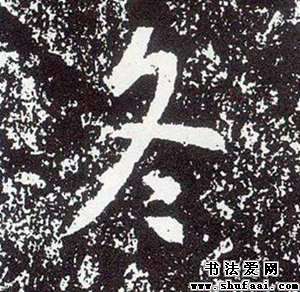 冬
书法爱网
www.shufaai.com